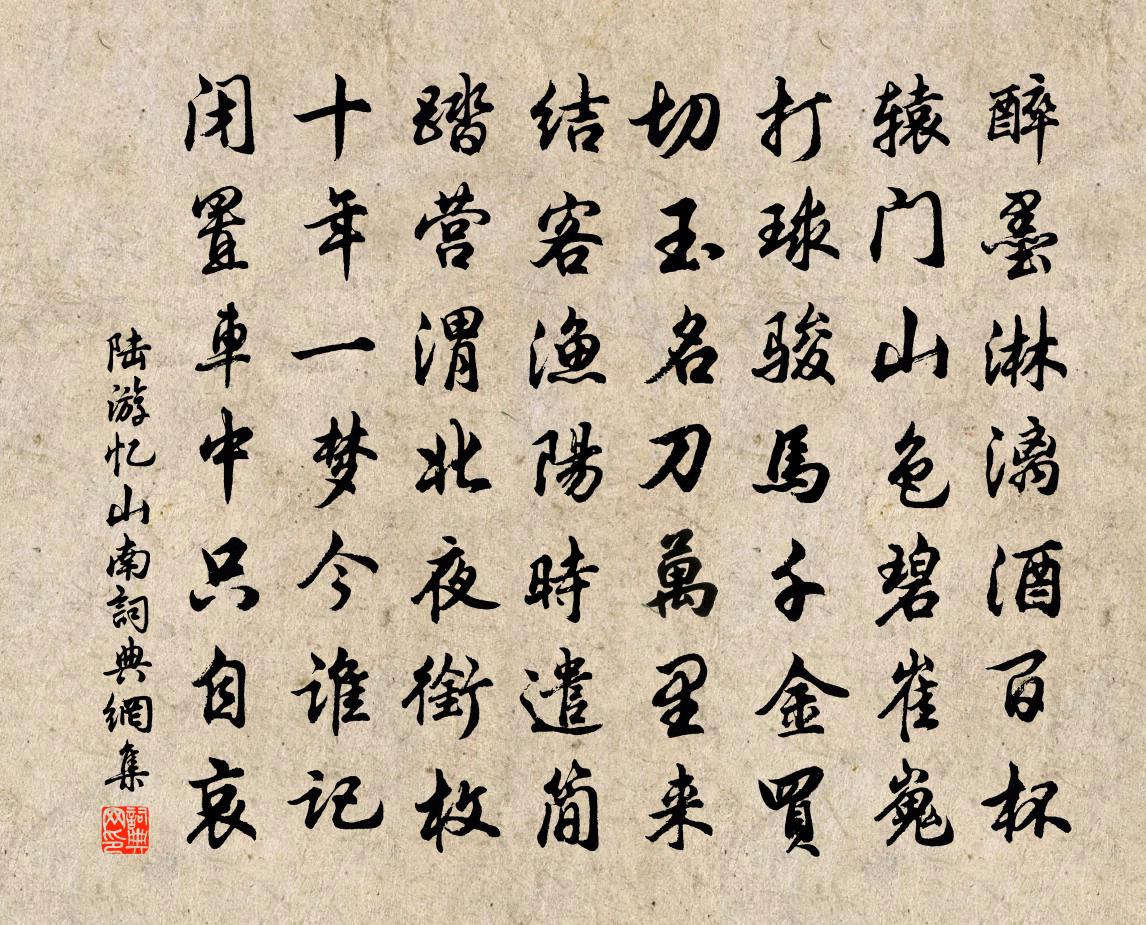 醉墨淋漓酒百杯
辕门山色碧崔嵬
打球骏馬千金買
切玉名刀萬里来
结客漁陽時遣简
踏营渭北夜衔枚
十年一梦今谁记
闭置車中只自哀
陆游忆山南詞典網集
詞典
网印